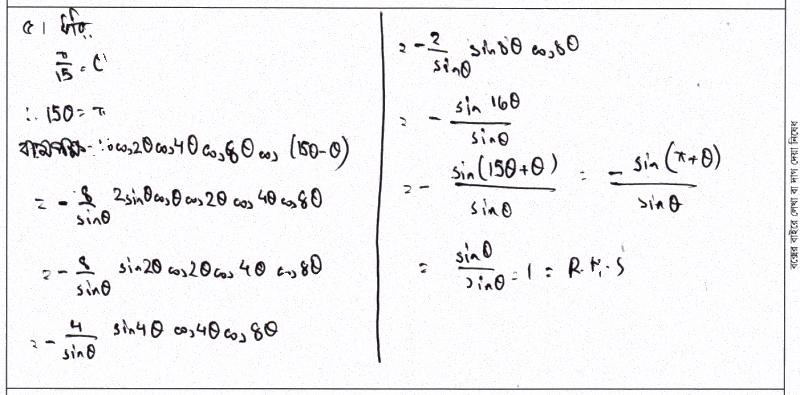 ৫। ধরি,
π/15 = θ
∴ 15θ = π
বামপক্ষ = 16 cos2θ cos4θ cos8θ cos (15θ-θ)
= - 8/sinθ 2sinθ cosθ cos2θ cos4θ cos8θ
= - 8/sinθ sin2θ cos2θ cos4θ cos8θ
= - 4/sinθ sin4θ cos4θ cos8θ
= - 2/sinθ sin8θ cos8θ
= - sin 16θ/sinθ
= - sin(15θ+θ)/sinθ = - sin(π+θ)/sinθ
= sinθ/sinθ = 1 = R.H.S
বক্সের বাইরে লেখা বা দাগ দেয়া নিষেধ